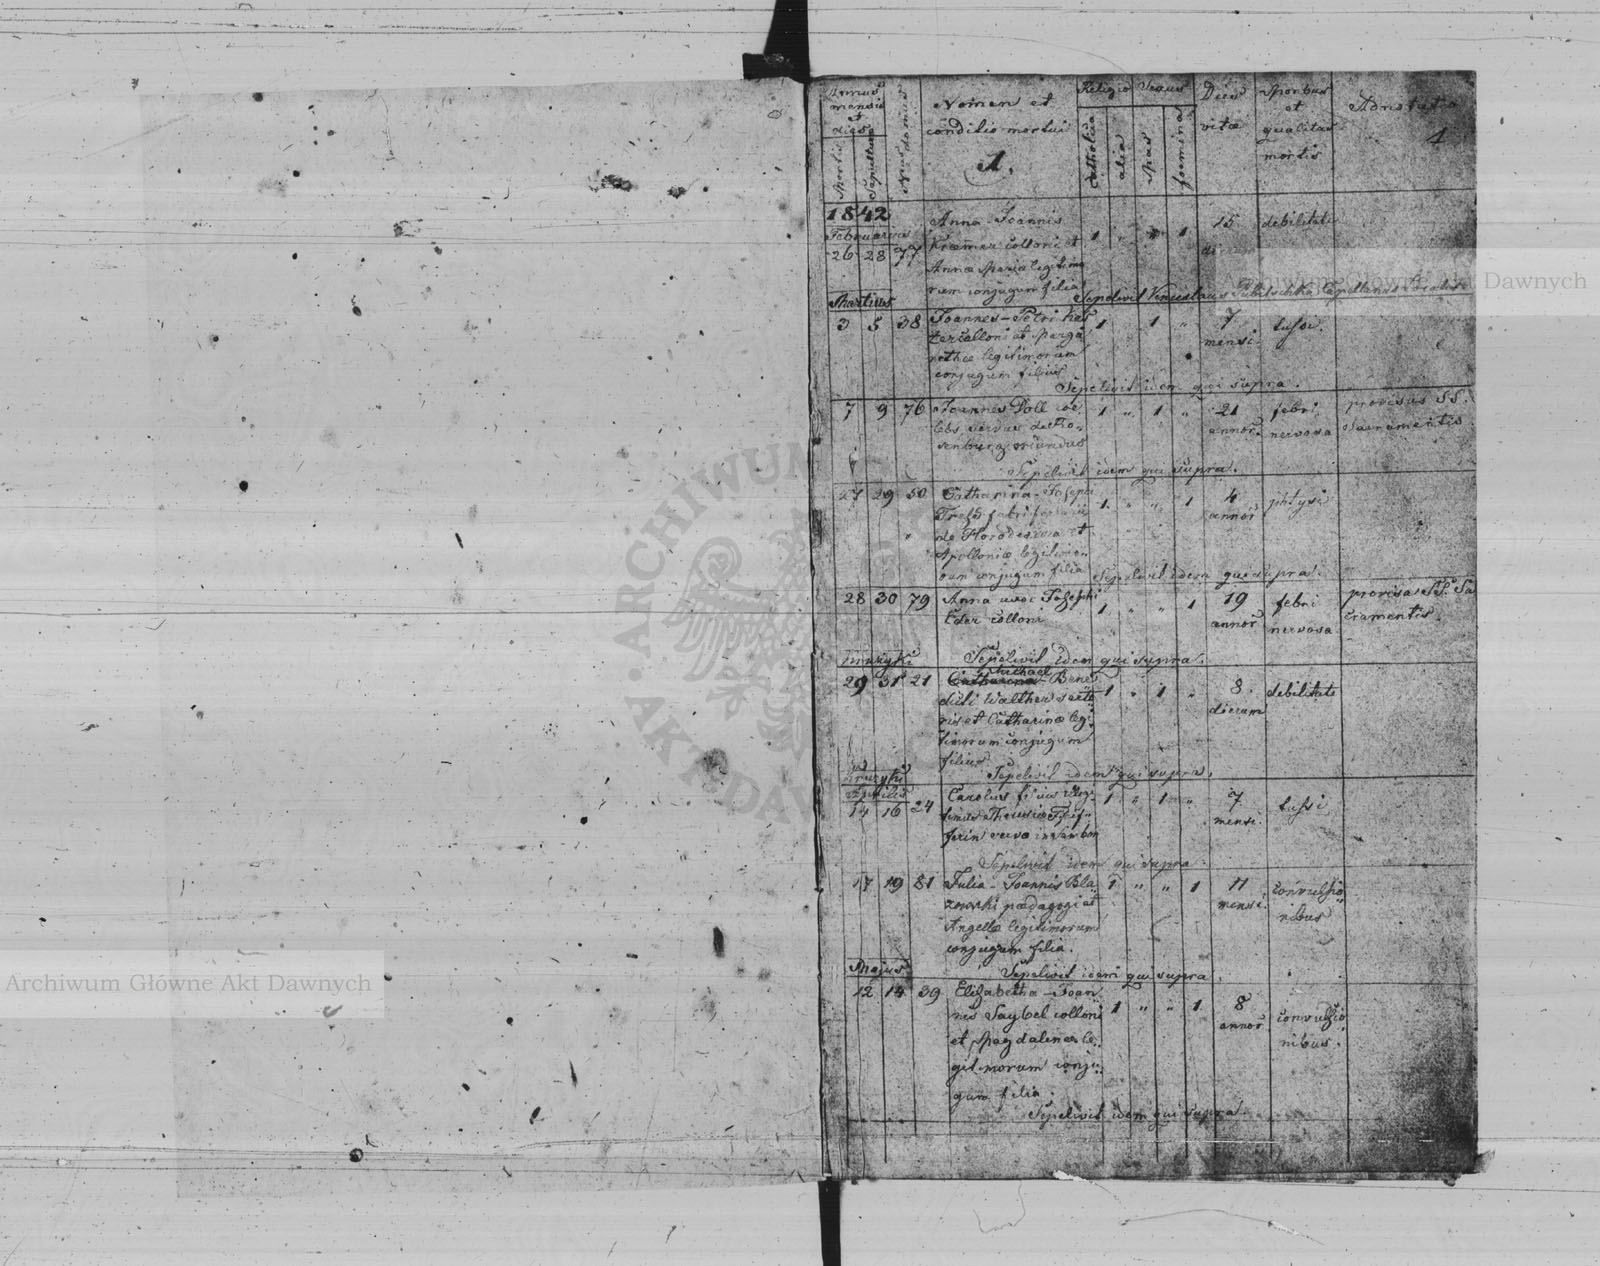 Annus
mensis
et
dies
Mortis
Sepulturae
Nrus domus
Nomen et
conditio mortui
A.
Religio
catholica
alia
Sexus
mas
foemina
Dies
vitae
Morbus
et
qualitas
mortis
Adnotata
1
1842
Februarius
26 28 77
Anna Joannis
Kremer colloni et
Annae Mariae legitimo
rum conjugum filia
1 " " 1
15
dierum
debilitate
Sepelivit Venceslaus
Martius
3 5 38
Joannes - Petri
colloni et Marga
rethae legitimorum
conjugum filius
1 1 "
7
mensi.
tussi.
Sepelivit idem qui supra.
7 9 76
Joannes Doll coe,
lebs servus de
oriundus
1 " 1 "
21
annor.
febri
nervosa
provisus SS.
Sacramentis
Sepelivit idem qui supra.
27 29 50
Catharina - Joseph
de et
Apolloniae legitimo,
rum conjugum filia
1 " " 1
4
annor
phtysi
Sepelivit idem qui supra.
28 30 79
Anna uxor Josephi
Eder colloni
1 " " 1
19
annor
febri
nervosa
provisa SS. Sa
cramentis.
Sepelivit idem qui supra.
29 31 21
Michael
Catharina - Bene
dicti Walther
et Catharinae leg.
timorum conjugum
filius
1 " 1 "
8.
dierum
debilitate
Sepelivit idem qui supra.
Aprilis
14 16 24
Carolus filius illegi
timus Theresiae
1 " 1 "
7
mensi.
tussi
Sepelivit idem qui supra
17 19 81
Julia - Joannis Bla
zowski paedagogi et
Angelae legitimorum
conjugum filia.
1 " " 1
11
mensi.
convulsio
nibus
Sepelivit idem qui supra.
Majus
12 14 39
Elisabetha - Joan
nis Saybel colloni
et Magdalenae le,
gitimorum conju,
gum filia.
1 " " 1
8
annor
convulsio
nibus.
Sepelivit idem qui supra.
Archiwum Główne Akt Dawnych
Archiwum Główne Akt Dawnych
ARCHIWUM
AKT DAWNYCH